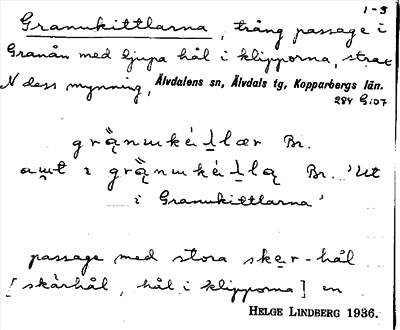 1-3
Granukittlarna, trång passage i
Granån med djupa hål i klipporna, strax
N dess mynning, Älvdalens sn, Älvdals tg, Kopparbergs län.
284 G:07
Br.
ı Br. 'Ut
i Granukittlarna'
passage med stora sker-hål
[skärhål, hål i klipporna] en
HELGE LINDBERG 1936.